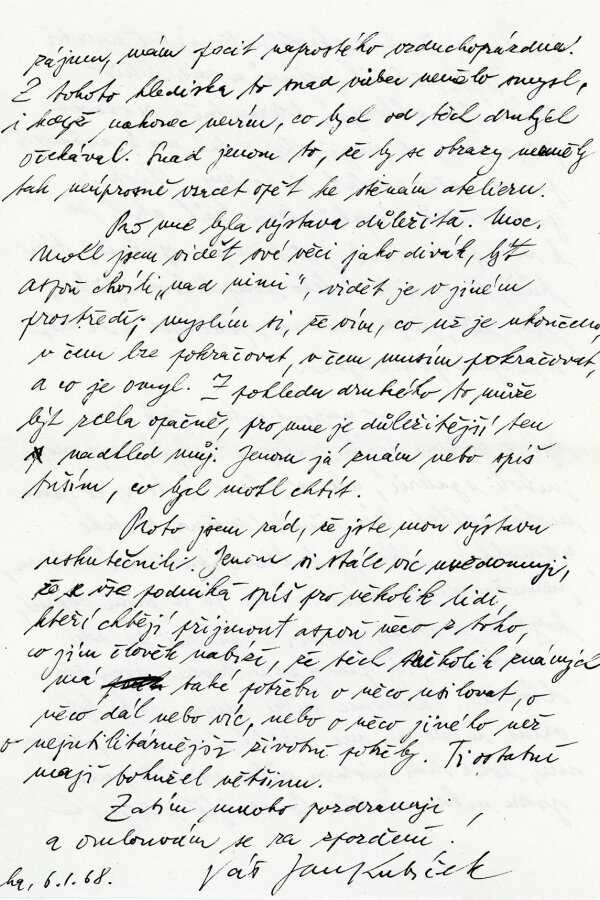 zájmu, mám pocit naprostého vzduchoprázdna!
Z tohoto hlediska to snad vůbec nemělo smysl,
i když nakonec nevím, co bych od těch druhých
očekával. Snad jenom to, že by se obrazy neměly
tak neúprosně vracet opět ke stěnám atelieru.
Pro mne byla výstava důležitá. Moc.
Mohl jsem vidět své věci jako divák, být
aspoň chvíli „nad nimi“, vidět je v jiném
prostředí; myslím si, že vím, co už je ukončeno,
v čem lze pokračovat, v čem musím pokračovat,
a co je omyl. Z pohledu druhého to může
být zcela opačně, pro mne je důležitější ten
nadhled můj. Jenom já znám nebo spíš
tuším, co bych mohl chtít.
Proto jsem rád, že jste mou výstavu
uskutečnili. Jenom si stále víc uvědomuji,
že vše podniká spíš pro několik lidí,
kteří chtějí přijmout aspoň něco z toho,
co jim člověk nabízí, že těch několik známých
má také potřebu o něco usilovat, o
něco dál nebo víc, nebo o něco jiného než
o nejutilitárnější životní potřeby. Ti ostatní
mají bohužel většinu.
Zatím mnoho pozdravuji
a omlouvám se za zpoždění.
Váš Jan Kubíček
6.1.68.